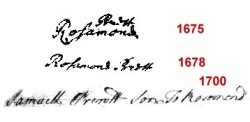 Pruett
Rosamond 1675
Rosamond Pruett 1678
1700
Samuell Prewitt Son To Rosmond